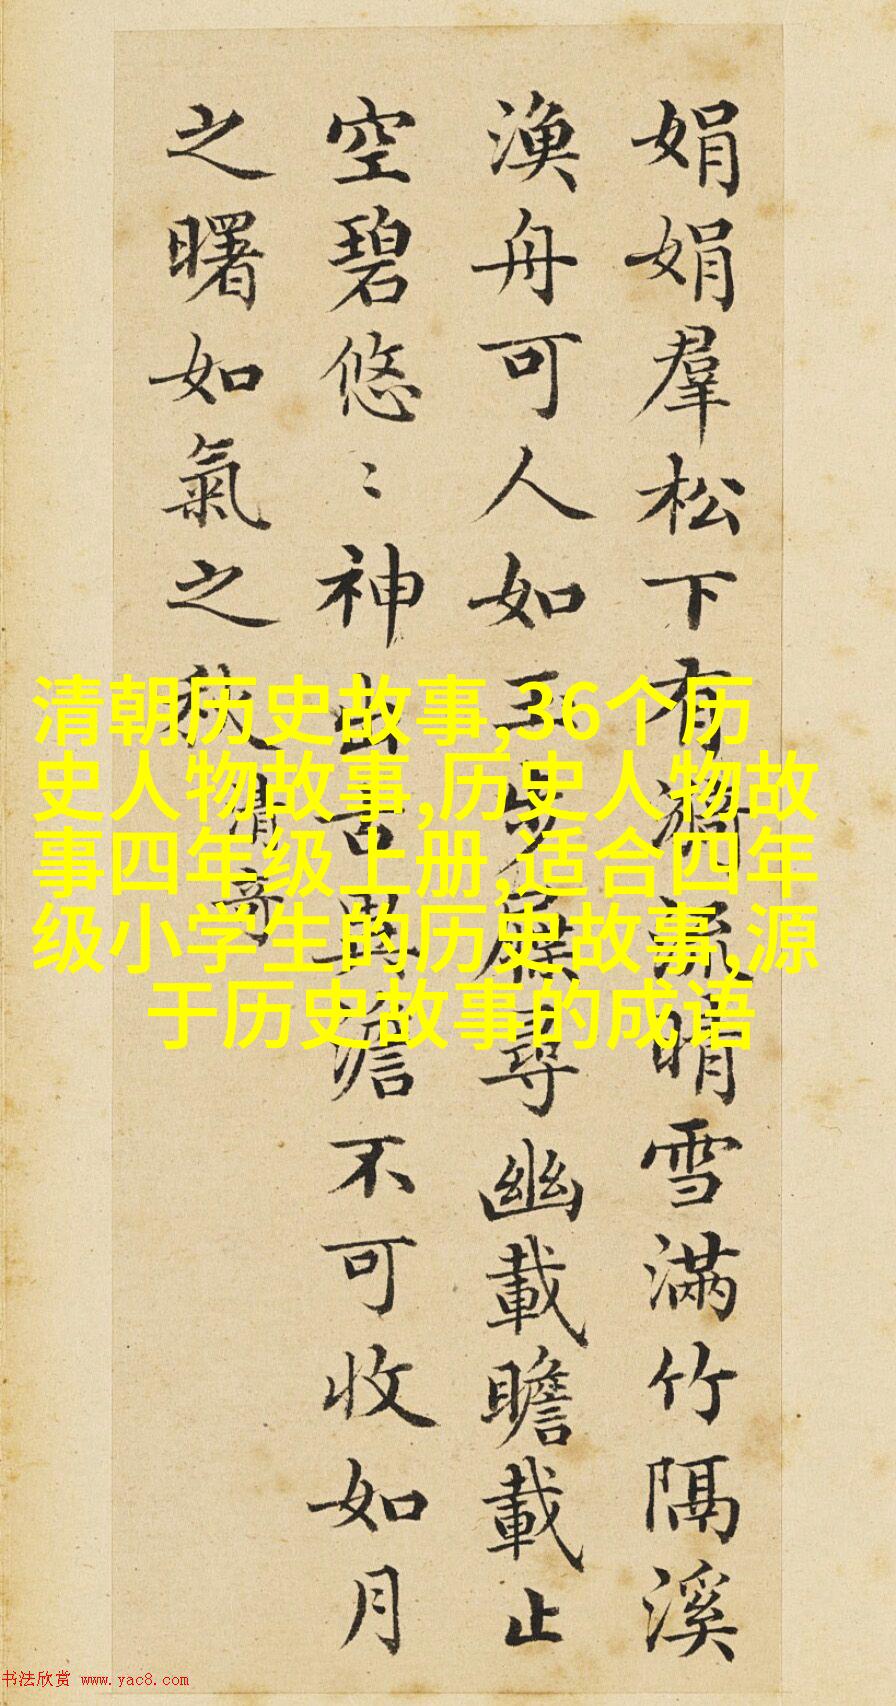 娟娟羣松下有漪流晴雪滿竹隔溪
漁舟可人如玉步屧尋幽載瞻載止
空碧悠〻神出古異澹不可收如月
之曙如氣之秋 清奇
清朝历史故事,36个历
史人物故事,历史人物故
事四年级上册,适合四年
级小学生的历史故事,源
于历史故事的成语
书法欣赏 www.yac8.com